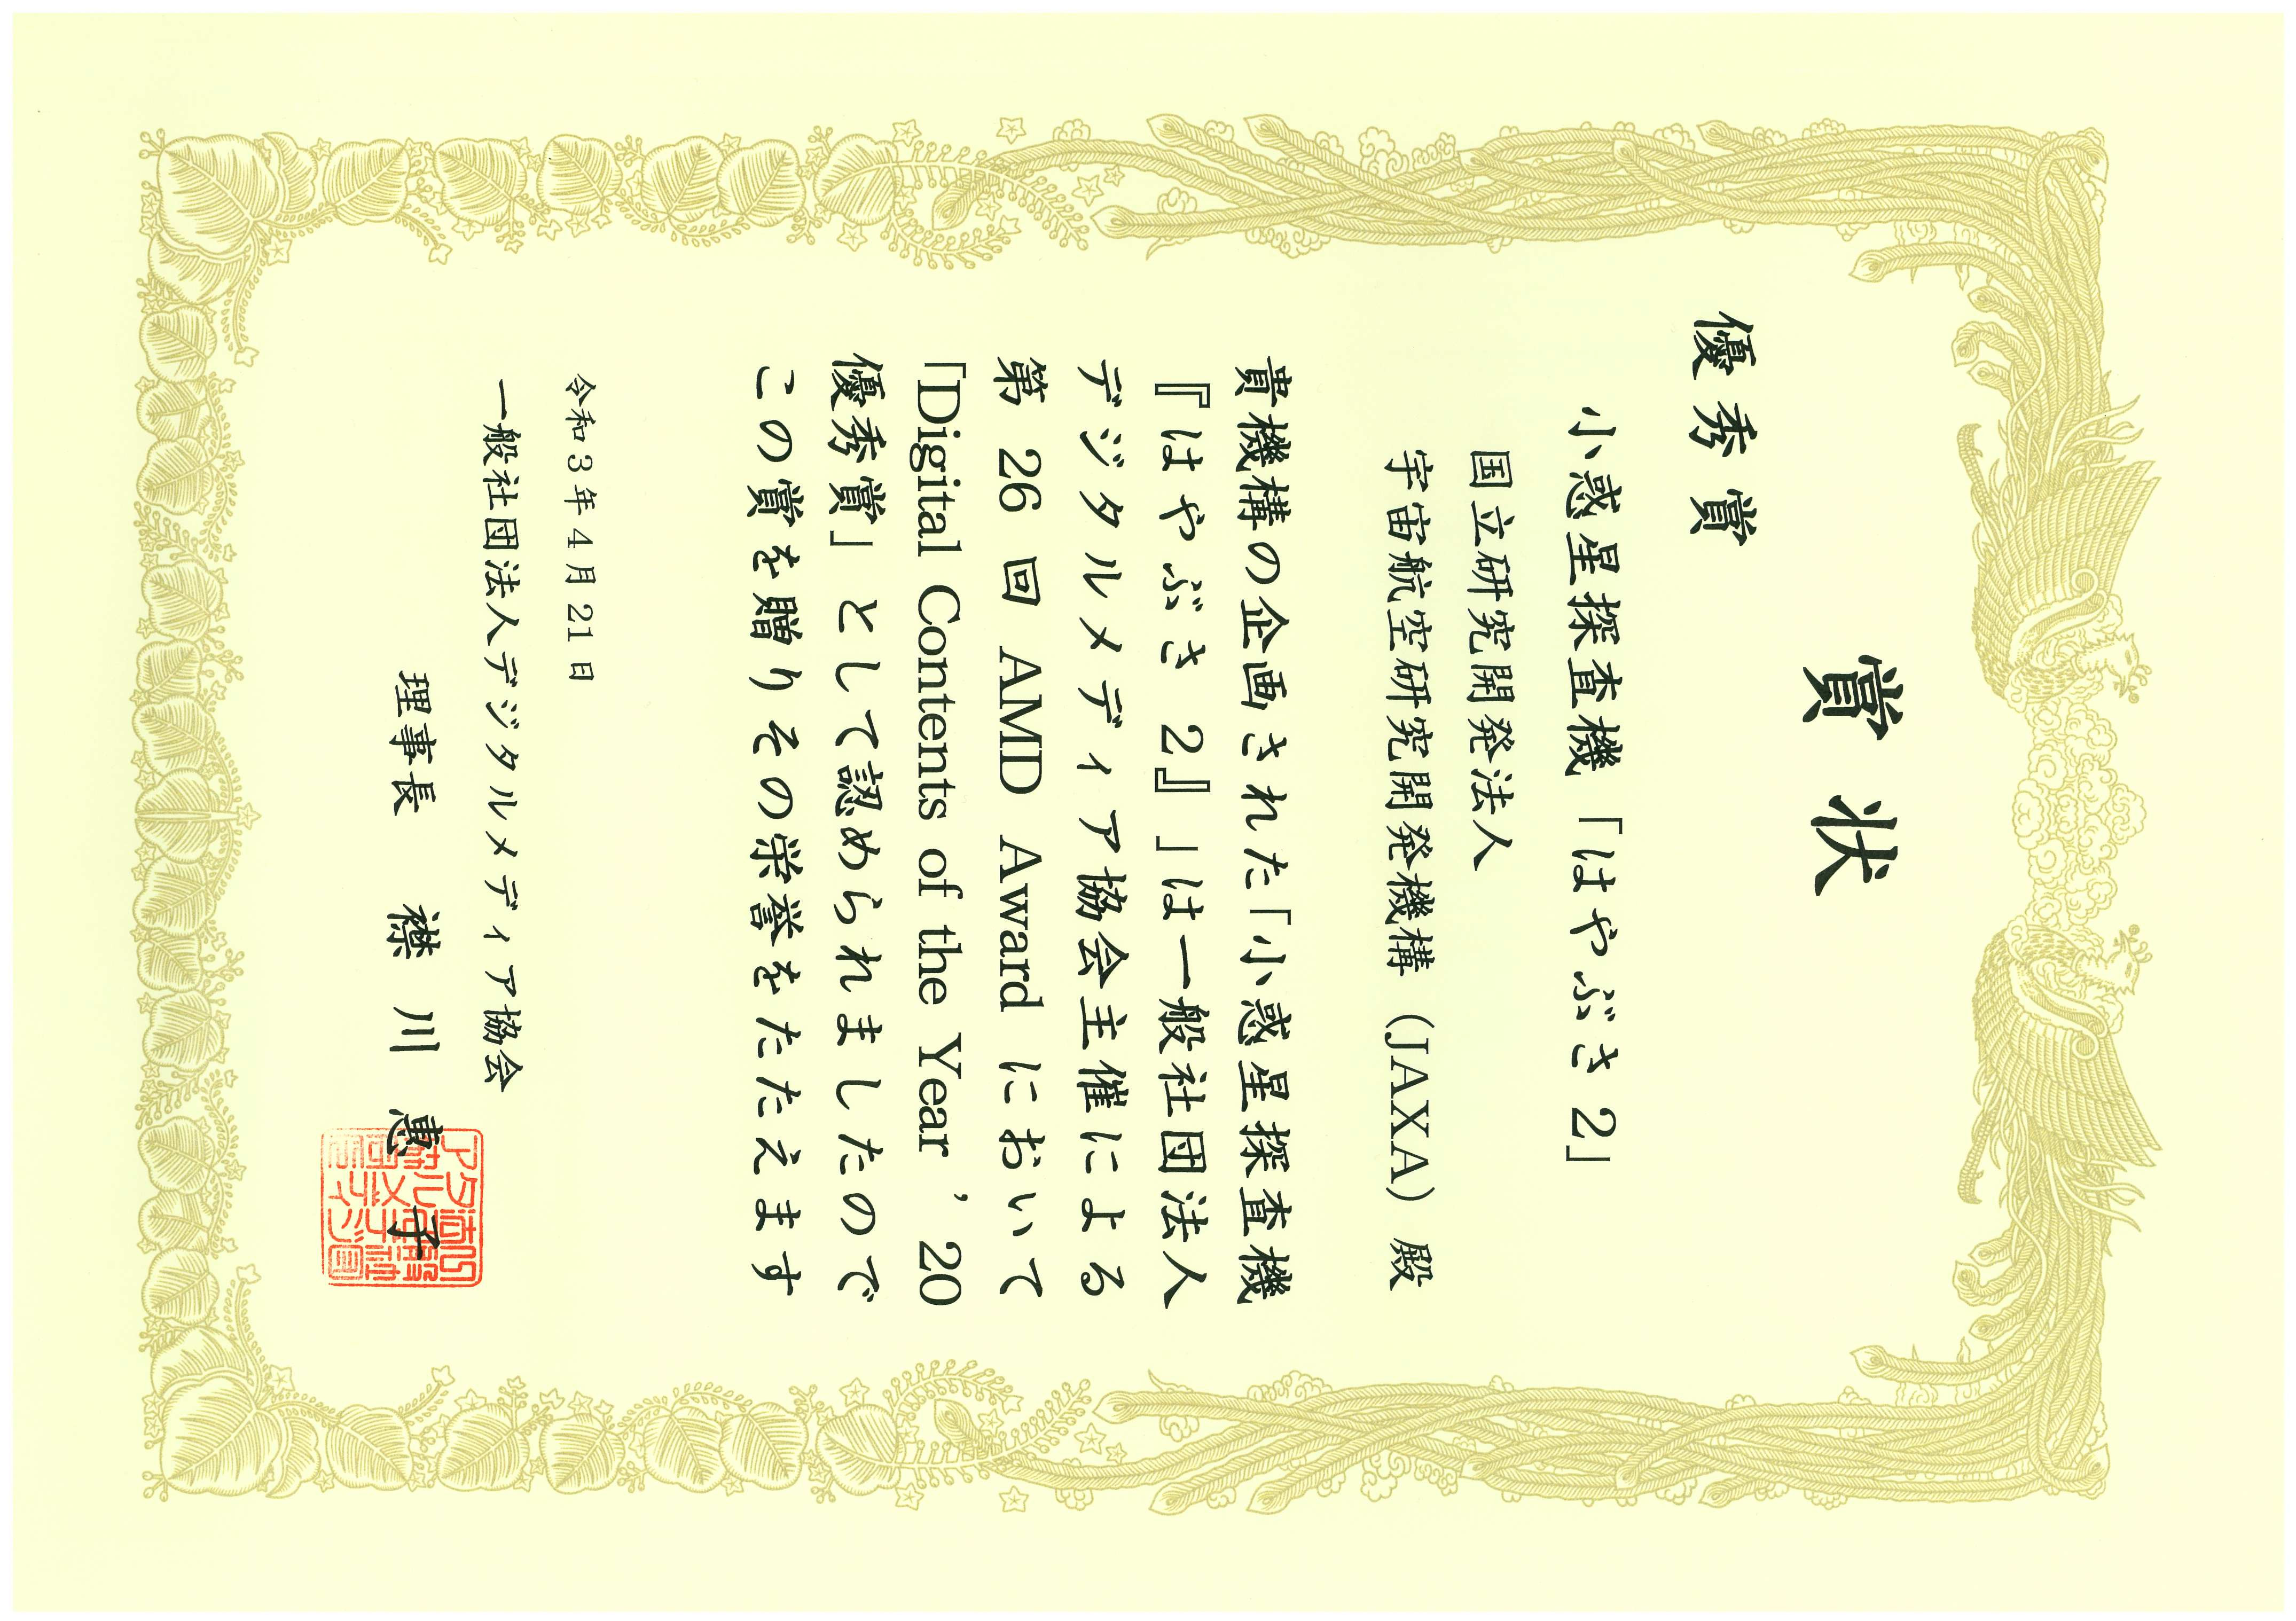 賞状
優秀賞
小惑星探査機「はやぶさ 2」
国立研究開発法人
宇宙航空研究開発機構（JAXA）殿
貴機構の企画された「小惑星探査機
『はやぶさ 2』」は一般社団法人
デジタルメディア協会主催による
第 26 回 AMD Award において
「Digital Contents of the Year ’20
優秀賞」として認められましたので
この賞を贈りその栄誉をたたえます
令和 3 年 4 月 21 日
一般社団法人デジタルメディア協会
理事長 襟川 恵子